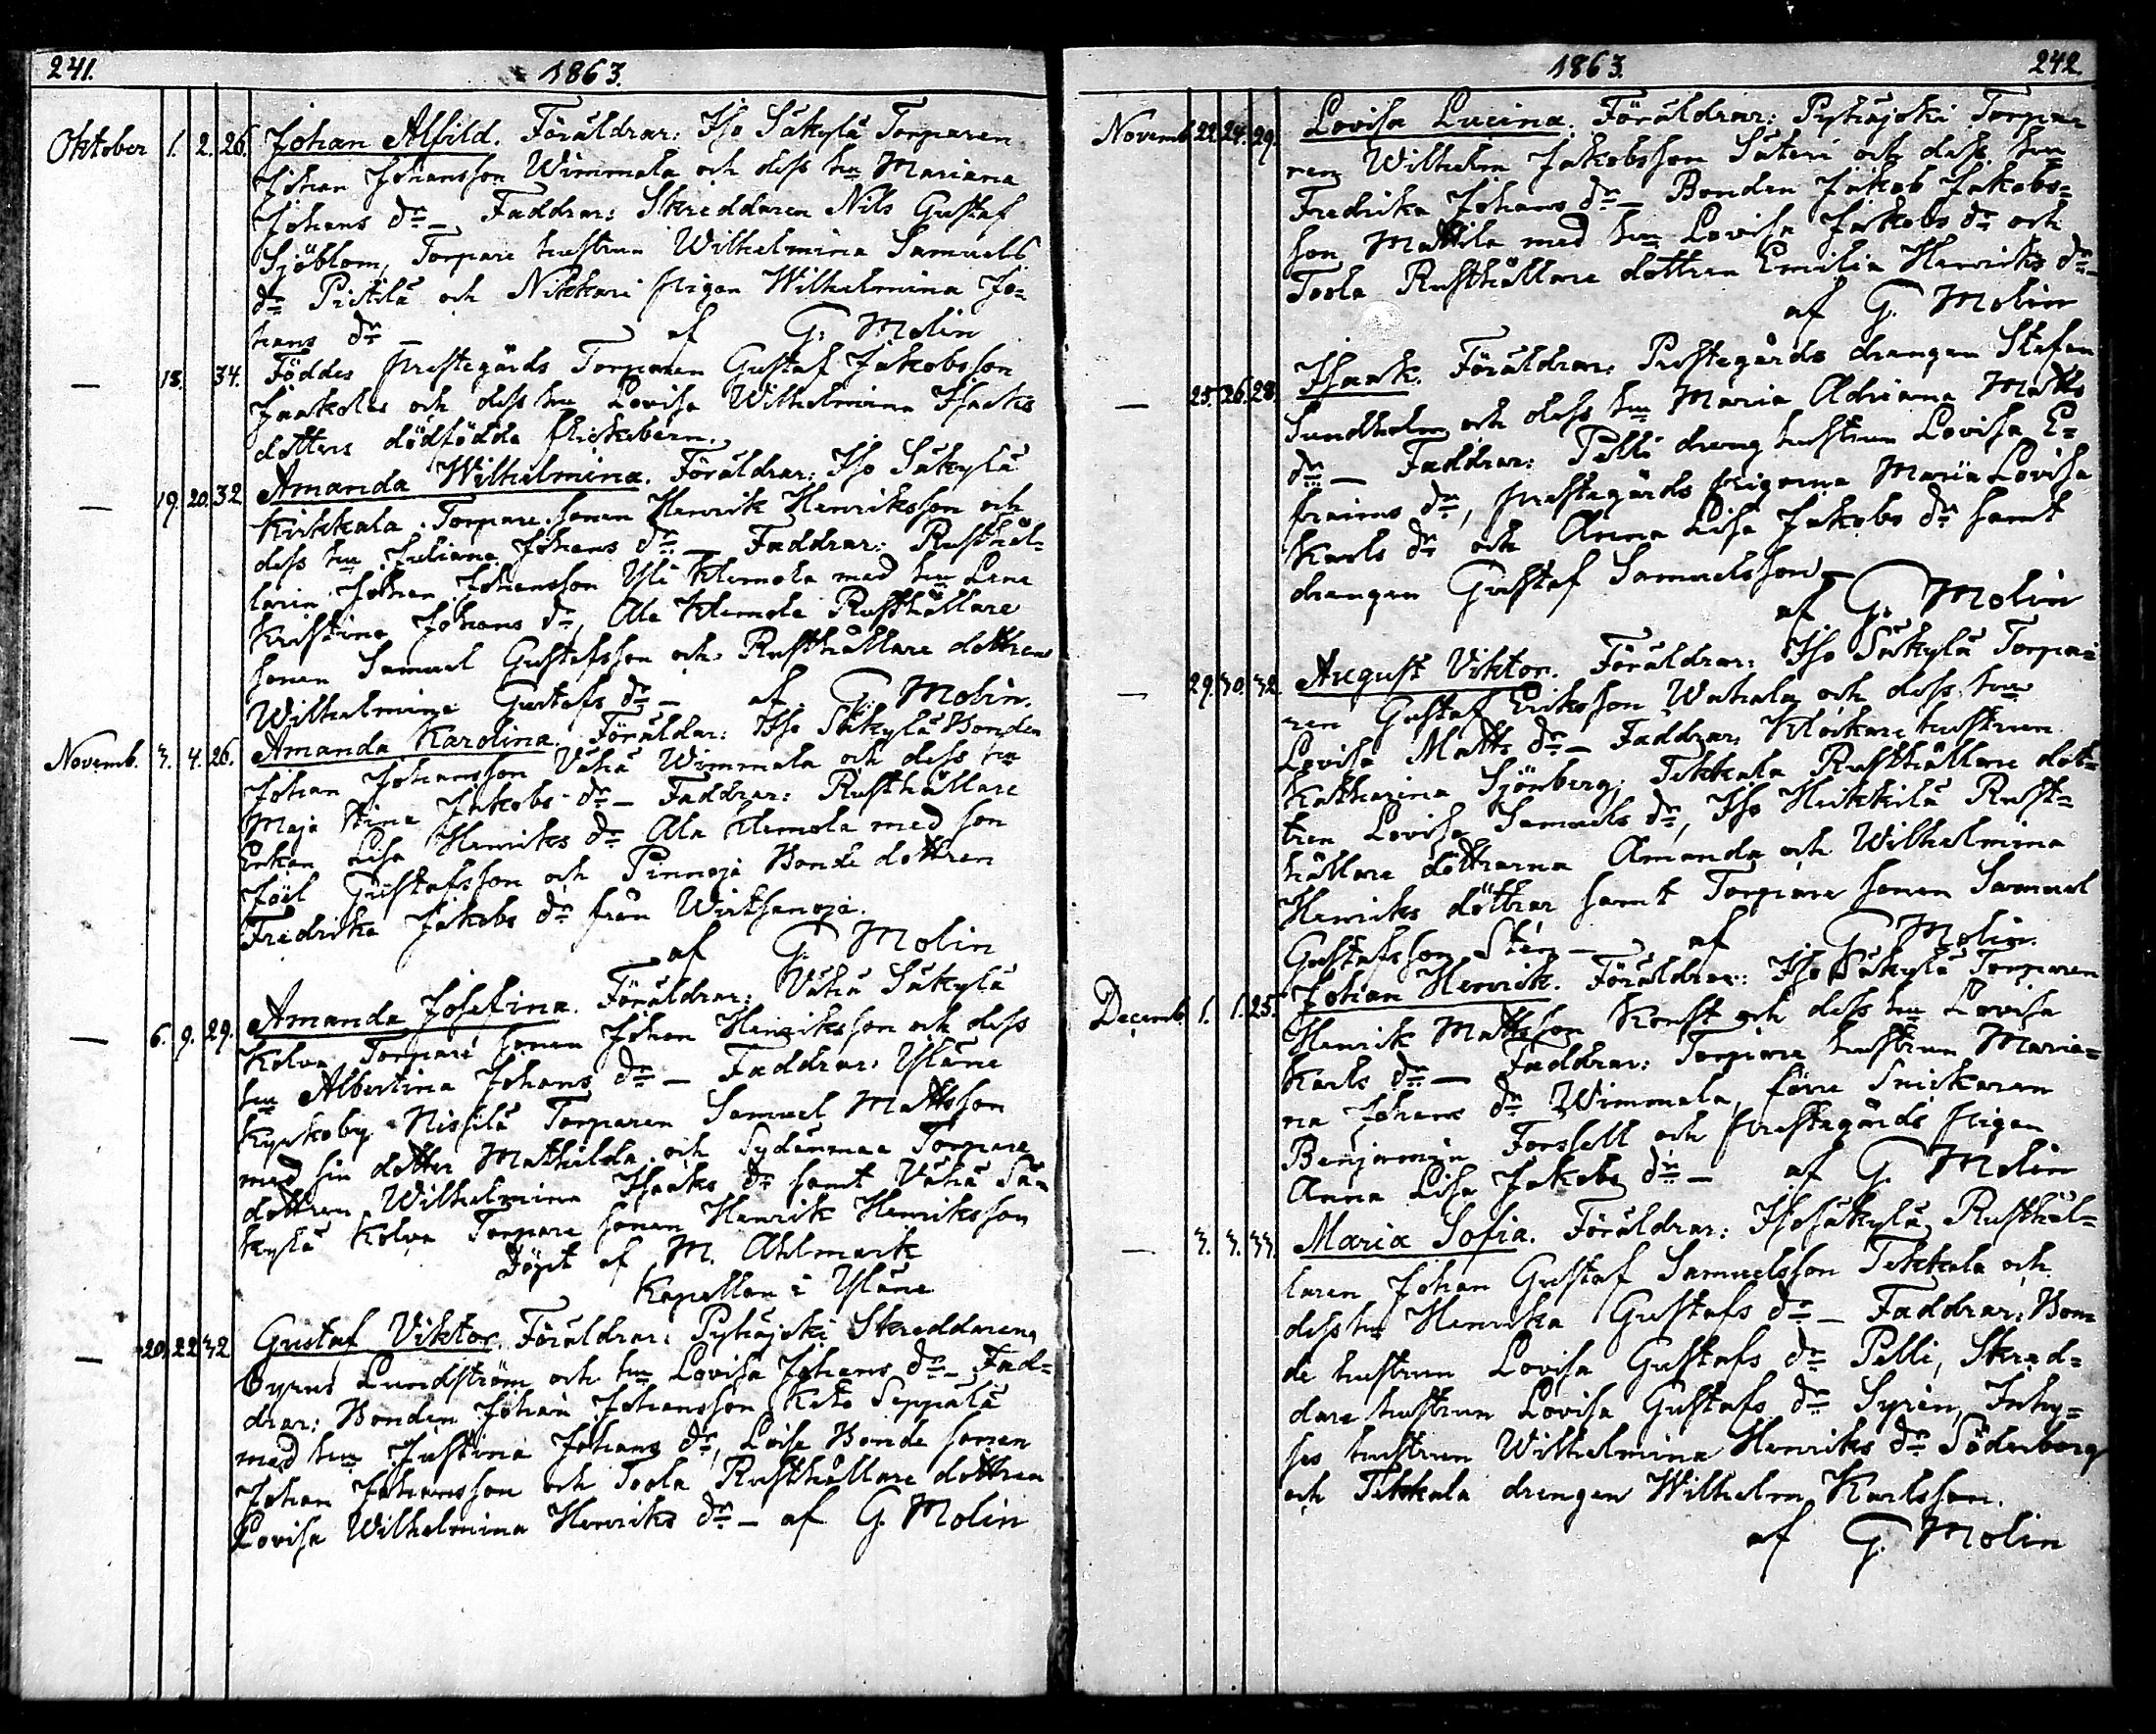 241.
1863.
Oktober 1. 2. 26. Johan Alfrid. Föräldrar: Iso Säkylä Torparen
Johan Johansson Wimmala och dess hu Mariana
Johans dr — Faddrar: Skreddaren Nils Gustaf
Sjöblom, Torpare hustrun Wilhelmina Samuels
dr Pietilä och Nikkari pigan Wilhelmina Jo=
hans dr — af G. Molin
— 18. 34. Föddes prestegårds Torparen Gustaf Jakobsson
Jaakolas och dess hu Lovisa Wilhelmina Isacks
dotters dödfödda flickebarn.
— 19. 20. 32 Amanda Wilhelmina. Föräldrar: Iso Säkylä
Kirkkala Torpare sonen Henrik Henriksson och
dess hu Juliana Johans dr — Faddrar: Rusthål=
larin Johan Johansson Yli Klemola med hu Lena
Kristina Johans dr, Ala Klemola Rusthållare
sonen Samuel Gustafsson och Rusthållare dottren
Wilhelmina Gustafs dr — af G. Molin.
Novemb. 3. 4. 26. Amanda Karolina. Föräldar: Iso Säkylä Bonden
Johan Johansson Vähä Wimmala och dess hu
Maja Stina Jakobs dr — Faddrar: Rusthållare
Enkan Lisa Henriks dr Ala Klemola med son
Joel Gustafsson och Pinnoja Bonde dottren
Fredrika Jakobs dr från Wirtsanoja.
af G. Molin
— 6. 9. 29. Amanda Josefina. Föräldrar: Vähä Säkylä
Kolva Torpare sonen Johan Henriksson och dess
hu Albertina Johans dr — Faddrar: Yläne
Kyrkoby Nissilä Torparen Samuel Mattsson
med sin dotter Mathilda och Sydänmaa Torpare
dottren Wilhelmina Isaaks dr samt Vähä Sä=
kylä Kolva Torpare sonen Henrik Henriksson
Döpt af M. Ahlmark
Kapellan i Yläne
— 20. 22 32 Gustaf Viktor. Föräldrar: Pyhäjoki Skreddaren
Cyrus Lundström och hu Lovisa Johans dr — Fad=
drar: Bonden Johan Johansson Keto Seppälä
med hu Justina Johans dr, Loise Bonde sonen
Johan Johansson och Toola Rusthållare dottren
Lovisa Wilhelmina Henriks dr — af G. Molin
1863.
242.
Novemb 22. 24. 29. Lovisa Lucina. Föräldrar: Pyhäjoki Torpar
ren Wilhelm Jakobsson Säteri och dess hu
Fredrika Johans dr — Bonden Jakob Jakobs=
son Mattila med hu Lovisa Jakobs dr och
Toola Rusthållare dottren Emilia Henriks dr —
af G. Molin
— 25. 26. 28. Isaak. Föräldrar: Prestegårds drengen Stefan
Sundholm och dess hu Maria Adriana Matts
dr — Faddrar: Pelli dreng hustrun Lovisa E=
fraims dr, prestegårds pigorna Maria Lovisa
Karls dr och Anna Lisa Jakobs dr samt
drengen Gustaf Samuelsson —
af G. Molin
— 29. 30. 32. August Viktor. Föräldrar: Iso Säkylä Torpa=
ren Gustaf Eriksson Wahala och dess hu
Lovisa Matts dr — Faddrar: Klockare hustrun
Katharina Sjönberg, Tekkala Rusthållare dot=
tren Lovisa Samuels dr, Iso Heikkilä Rust=
hållare döttrarna Amanda och Wilhelmina
Henriks döttrar samt Torpare sonen Samuel
Gustafsson Sten — af G. Molin.
Decemb 1. 1. 25. Johan Henrik. Föräldrar: Iso Säkylä Torparen
Henrik Mattsson Korst och dess hu Lovisa
Karls dr — Faddrar: Torpare hustrun Maria=
na Johans dr Wimmala, förre Snickaren
Benjamin Forssell och prestegårds pigan
Anna Lisa Jakobs dr — af G. Molin
— 3. 3. 33. Maria Sofia. Föräldrar: Iso Säkylä Rusthål=
laren Johan Gustaf Samuelsson Tekkala och
dess hu Henrika Gustafs dr — Faddrar: Bon=
de hustrun Lovisa Gustafs dr Pelli, Skred=
dare hustrun Lovisa Gustafs dr Syren, Inhy=
ses hustrun Wilhelmina Henriks dr Söderborg
och Tekkala drengen Wilhelm Karlsson.
af G. Molin